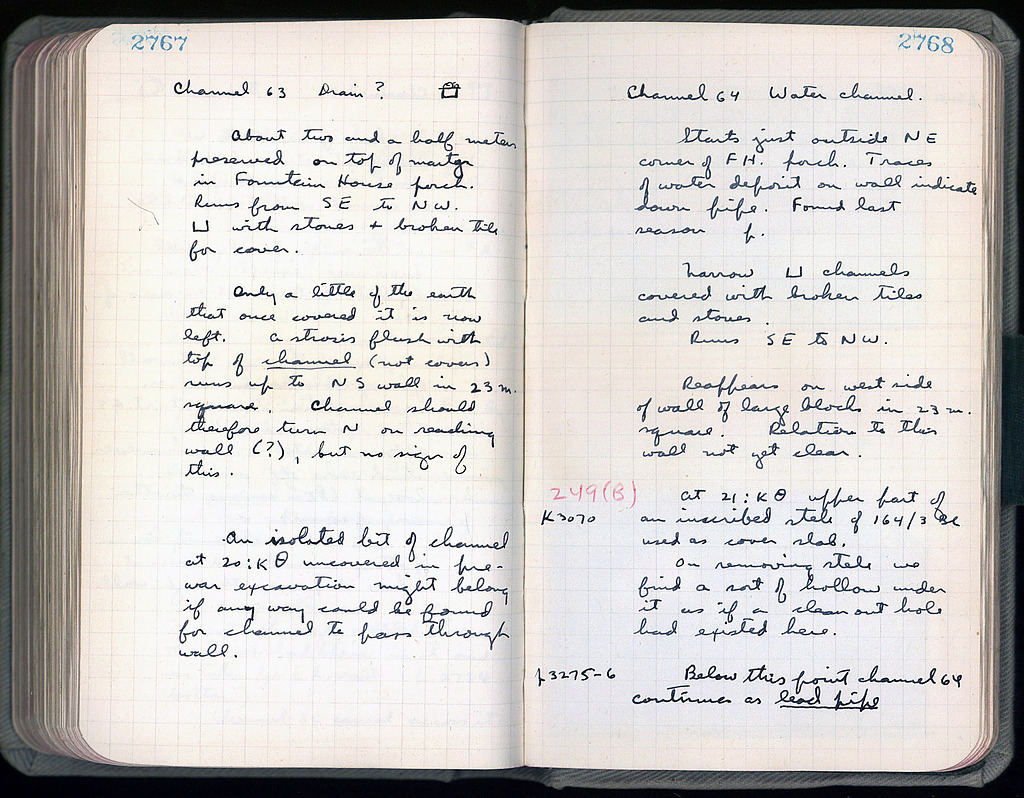 2767
Channel 63 Drain ?
About two and a half meters
preserved on top of
in Fountain House porch.
Runs from SE to NW.
⊔ with stones + broken tile
for cover.
Only a little of the earth
that once covered it is now
left. A strosis flush with
top of channel (not covers)
runs up to NS wall in 23 m.
square. Channel should
therefore turn N on reaching
wall (?), but no sign of
this.
An isolated bit of channel
at 20:ΚΘ uncovered in pre-
war excavation might belong
if any way could be found
for channel to pass through
wall.
2768
Channel 64 Water channel.
Starts just outside NE
corner of F.H. porch. Traces
of water deposit on wall indicate
down pipe. Found last
season p.
Narrow ⊔ channels
covered with broken tiles
and stones.
Runs SE to NW.
Reappears on west side
of wall of large blocks in 23 m.
square. Relation to this
wall not yet clear.
249(B)
At 21:ΚΘ upper part of
K3070
an inscribed stele of 164/3 BC
used as cover slab.
On removing stele we
find a sort of hollow under
it as if a clean out hole
had existed here.
p3275-6
Below this point channel 64
continues as lead pipe